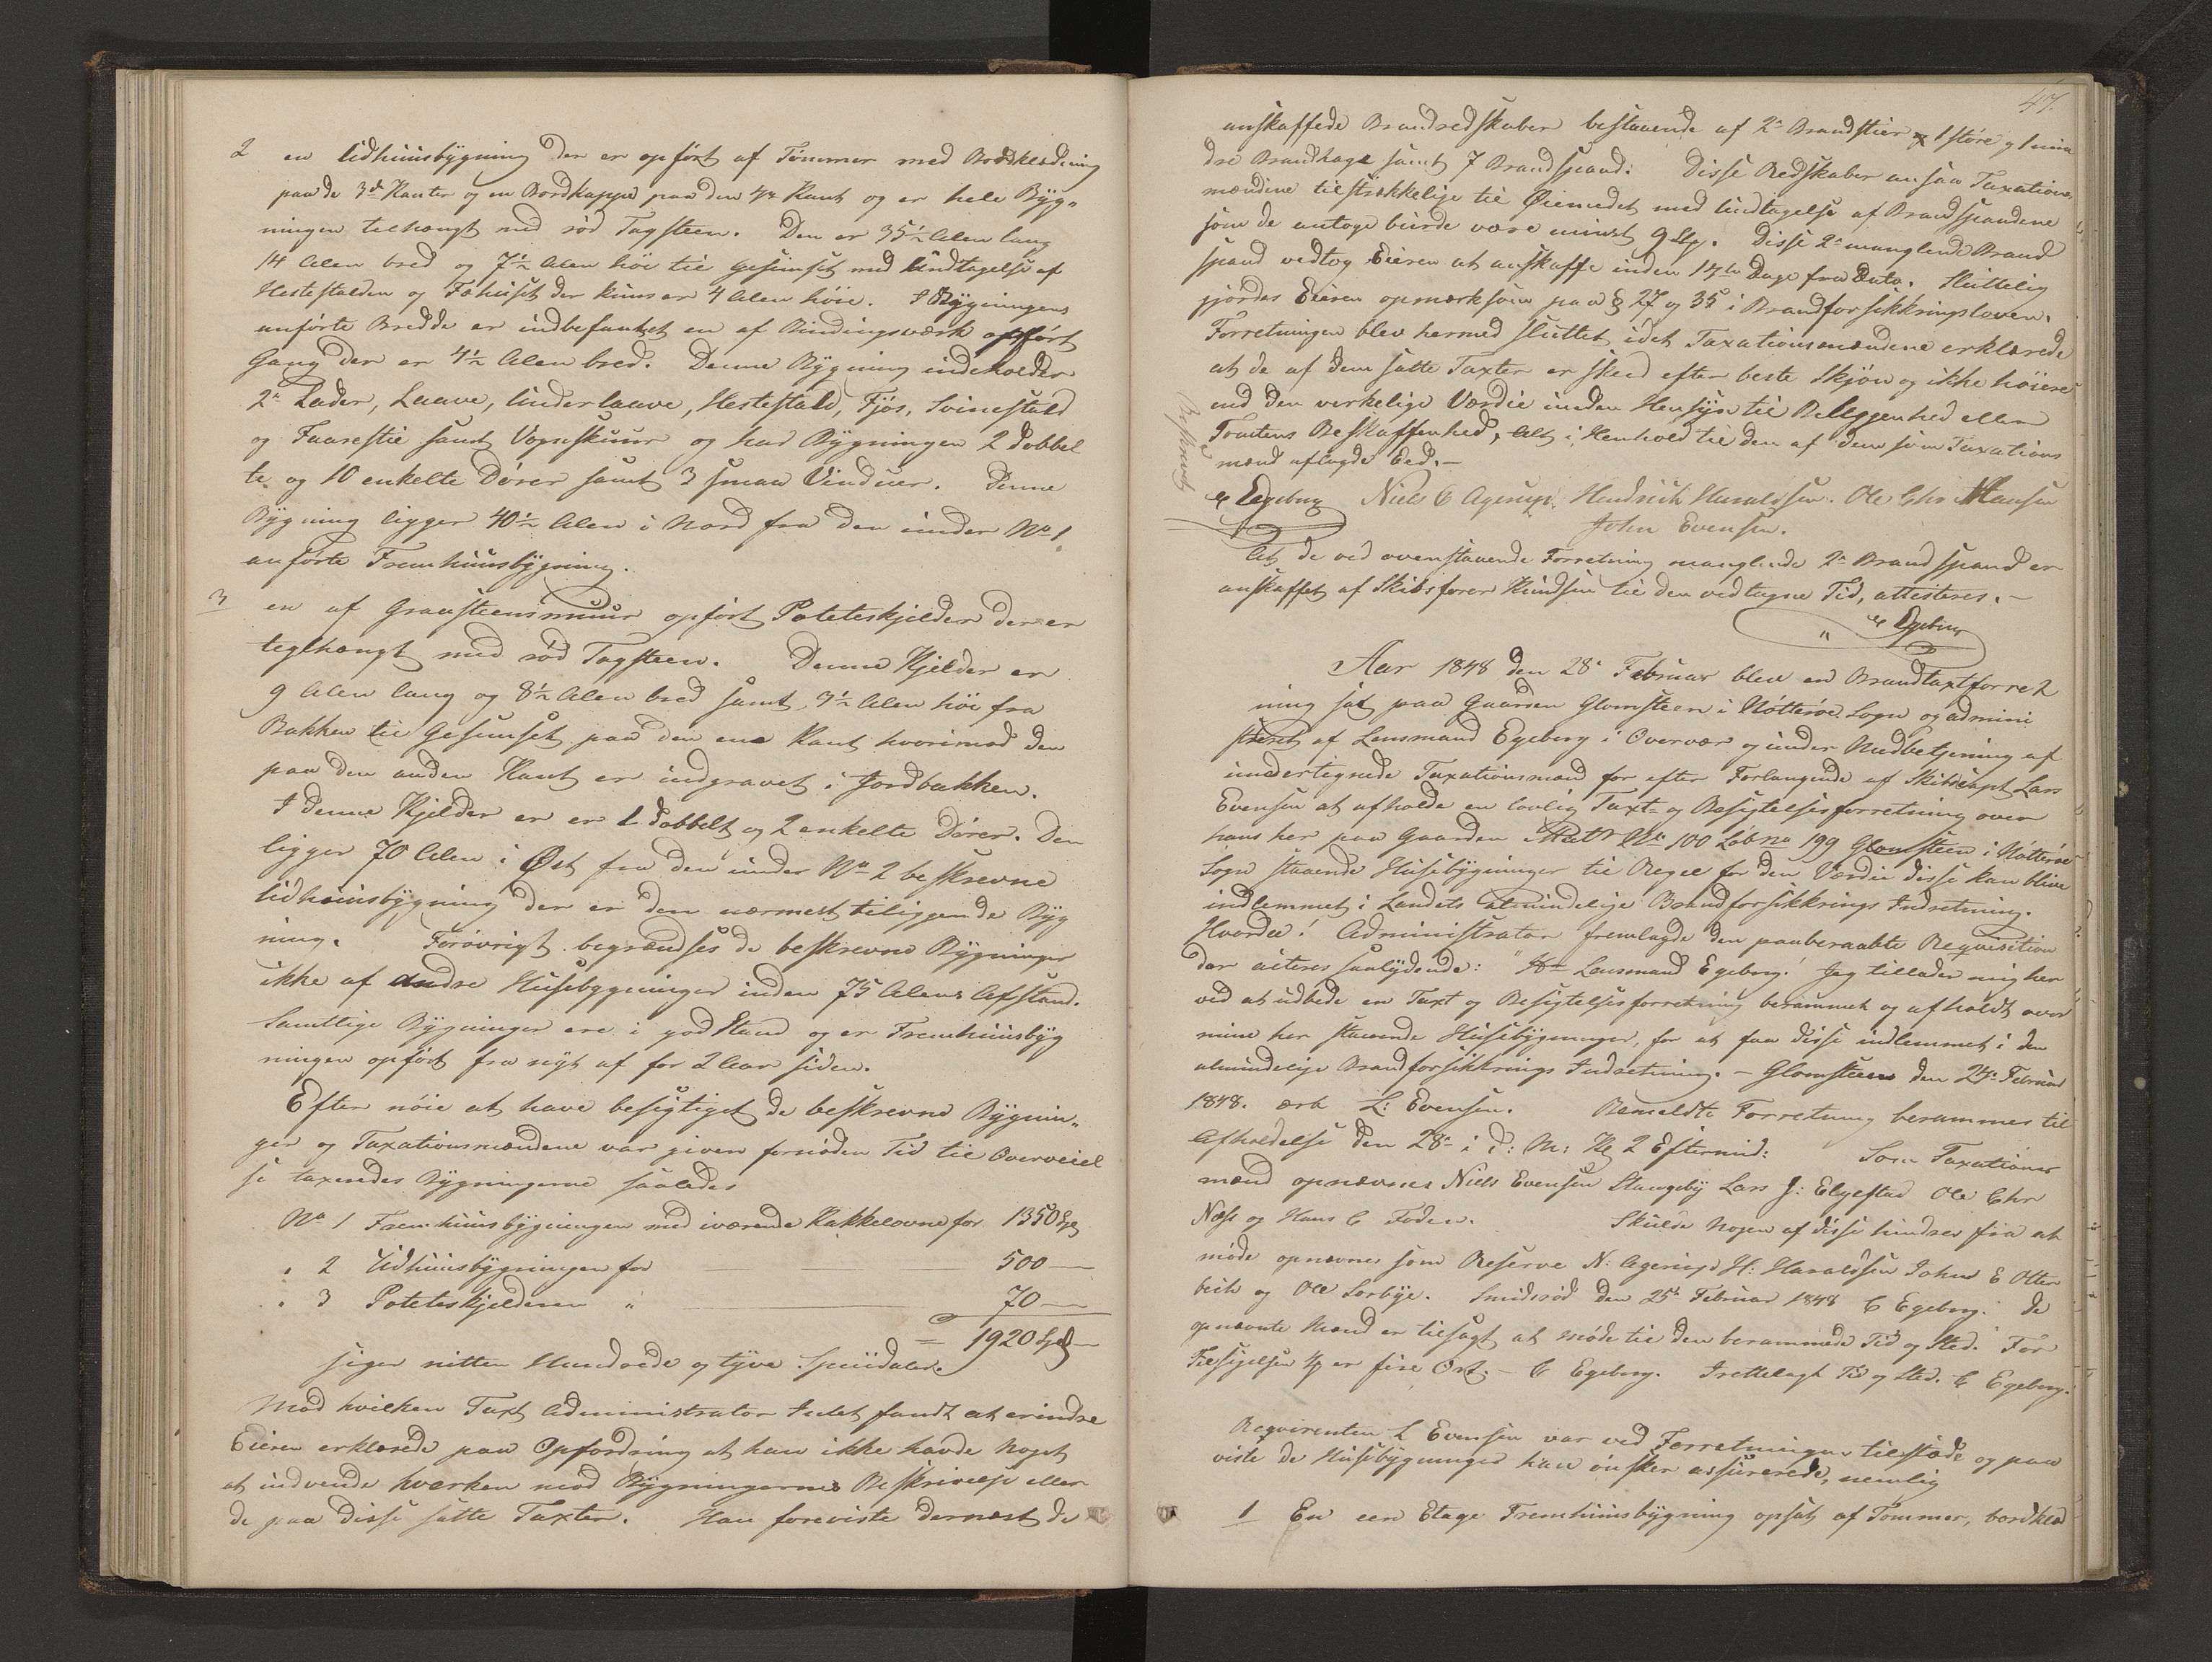 2 en Udhuusbygning der er opført af Tømmer med Bordklædning
paa de 3de Kanter og en Bordkappe paa den 4de Kant og er hele Byg-
ningen techængt med rød Tagsteen. Den er 35½ Alen lang
14 Alen bred og 7½ Alen høi til Gesimset med Undtagelse af
Hestestalden og Fæhuset der kuns er 4 Alen høie. I Bygningens
anførte Bredde er indbefattet en af Bindingsværk opført
Gang der er 4½ Alen bred. Denne Bygning indeholder
2de Lader, Laave, Underlaave, Hestestald, Fjøs, Svinestald
og Faarestie samt Vognskuur og har Bygningen 2 dobbel
te og 10 enkelte Dører samt 3 smaa Vinduer. Denne
Bygning ligger 40½ Alen i Nord fra den under No 1
anførte Fremhuusbygning.
3 en af Graasteensmuur opført Poteteskjelder der er
teglhængt med rød Tagsteen. Denne Kjelder er
9 Alen lang og 8½ Alen bred samt 3½ Alen høi fra
Bakken til Gesimset paa den ene Kant hvorimod den
paa den anden Kant er indgravet i Jordbakken.
I denne Kjelder er er 1 dobbelt og 2 enkelte Dører. Den
ligger 70 Alen i Øst fra den under No 2 beskrevne
Udhuusbygning der er den nærmest tilliggende Byg
ning. Forøvrigt begrændses de beskrevne Bygninger
ikke af andre Husebygninger inden 75 Alens Afstand.
Samtlige Bygninger ere i god Stand og er Fremhuusbyg
ningen opført fra nyt af for 2 Aar siden.
Efter nøie at have besigtiget de beskrevne Bygnin-
ger og Taxationsmændene var given fornøden Tid til Overveiel
se taxeredes Bygningerne saaledes
No 1 Fremhuusbygningen med iværende Kakkelovne for 1350 Spd
" 2 Udhuusbygningen for 500 —
" 3 Poteteskjelderen " 70 —
= 1920 Spd —
siger nitten Hundrede og tyve Speciedaler
Mod hvilken Taxt Administrator Intet fandt at erindre
Eieren erklærede paa Opfordring at han ikke havde noget
at indvende hverken mod Bygningernes Beskrivelse eller
de paa disse satte Taxter. Han foreviste dernæst de
47.
anskaffede Brandredskaber bestaaende af 2de Brandstier 1 større og 1 min
dre Brandhage samt 7 Brandspand. Disse Redskaber ansaa Taxations
mændene tilstrækkelige til Øiemedet med Undtagelse af Brandspandene
som de antoge burde være mindst 9 Stk. Disse 2de manglende Brand
spand vedtog Eieren at anskaffe inden 14te Dage fra Dato. Sluttelig
gjordes Eieren opmærksom paa § 27 og 35 i Brandforsikkringsloven.
Forretningen blev hermed sluttet idet Taxationsmændene erklærede
at de af dem satte Taxter er skeed efter beste Skjøn og ikke høiere
end den virkelige Værdie uden Hensyn til Beliggenhed eller
Tomtens Beskaffenhed, Alt i Henhold til den af dem som Taxations
mænd aflagde Eed.—
Beskrevet
C Egeberg Niels C Agerup. Hendrich Haraldsen. Ole Chr Hansen
John Evensen.
At de ved ovenstaaende Forretning manglende 2de Brandspand er
anskaffet af Skibsfører Knudsen til den vedtagne Tid, attesteres.—
C Egeberg
Aar 1848 den 28de Februar blev en Brandtaxtforret
ning sat paa Gaarden Glomsteen i Nøtterøe Sogn og admini
streret af Lensmand Egeberg i Overvær og under Medbetjening af
undertegnede Taxationsmænd for efter Forlangende af Skibscapt Lars
Evensen at afholde en lovlig Taxt- og Besigtelsesforretning over
hans her paa Gaarden Matr No 100 Løb no 199 Glomsteen i Nøtterøe
Sogn staaende Husebygninger til Regel for den Værdie disse kan blive
indlemmet i Landets almindelige Brandforsikkrings Indretning.
Hvorda! Administrator fremlagde den paaberaabte Reqvisition
der acteres saalydende: "Hr Lensmand Egeberg! Jeg tillader mig her
ved at udbede en Taxt og Besigtelsesforretning berammet og afholdt over
mine her staaende Husebygninger, for at faa disse indlemmet i den
almindelige Brandforsikkrings Indretning. — Glomsteen den 24de Februar
1848. ærb L: Evensen. Bemeldte Forretning berammes til
Afholdelse den 28de i d: M: Kl 2 Eftermid: Som Taxations
mænd opnævnes Niels Evensen Stangeby Lars J: Elgestad Ole Chr
Næss og Hans C Foden. Skulde nogen af disse hindres fra at
møde opnævnes som Reserve N: Agerup H: Haraldsen John E Otter
bek og Ole Sørbye. Smidsrød den 25de Februar 1848 C Egeberg. De
opnævnte Mænd er tilsagt at møde til den berammede Tid og Sted. For
Tilsigelsen er fire Ort.— C Egeberg. Irettelagt Tid og Sted. C Egeberg.
Reqvirenten L Evensen var ved Forretningen tilstæde og paa
viste de Husebygninger han ønsker assurerede, nemlig
1 En een Etage Fremhuusbygning opsat af Tømmer, bordklæd